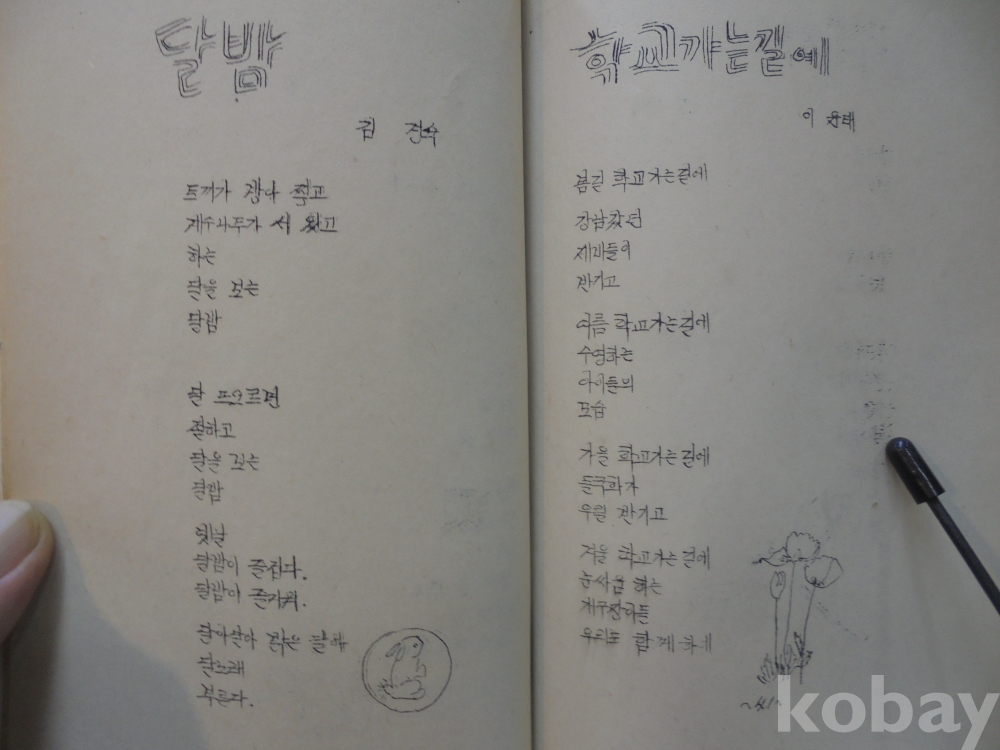 달밤
김 진수
토끼가 찧고
계수나무가 서 있고
하는
달을 보는
달밤
달
말하고
달을 보는
달밤
옛날
달밤이 즐겁다.
달밤이 즐거워.
달아달아 밝은 달아
달노래
부르자.
학교가는길에
이
봄길 학교가는길에
강남갔던
제비들이
반기고
여름 학교가는길에
수영하는
아이들의
모습
가을 학교가는길에
들국화가
우릴 반기고
겨울 학교가는길에
눈싸움 하는
개구장이들
우리도 함께 하네
kobay